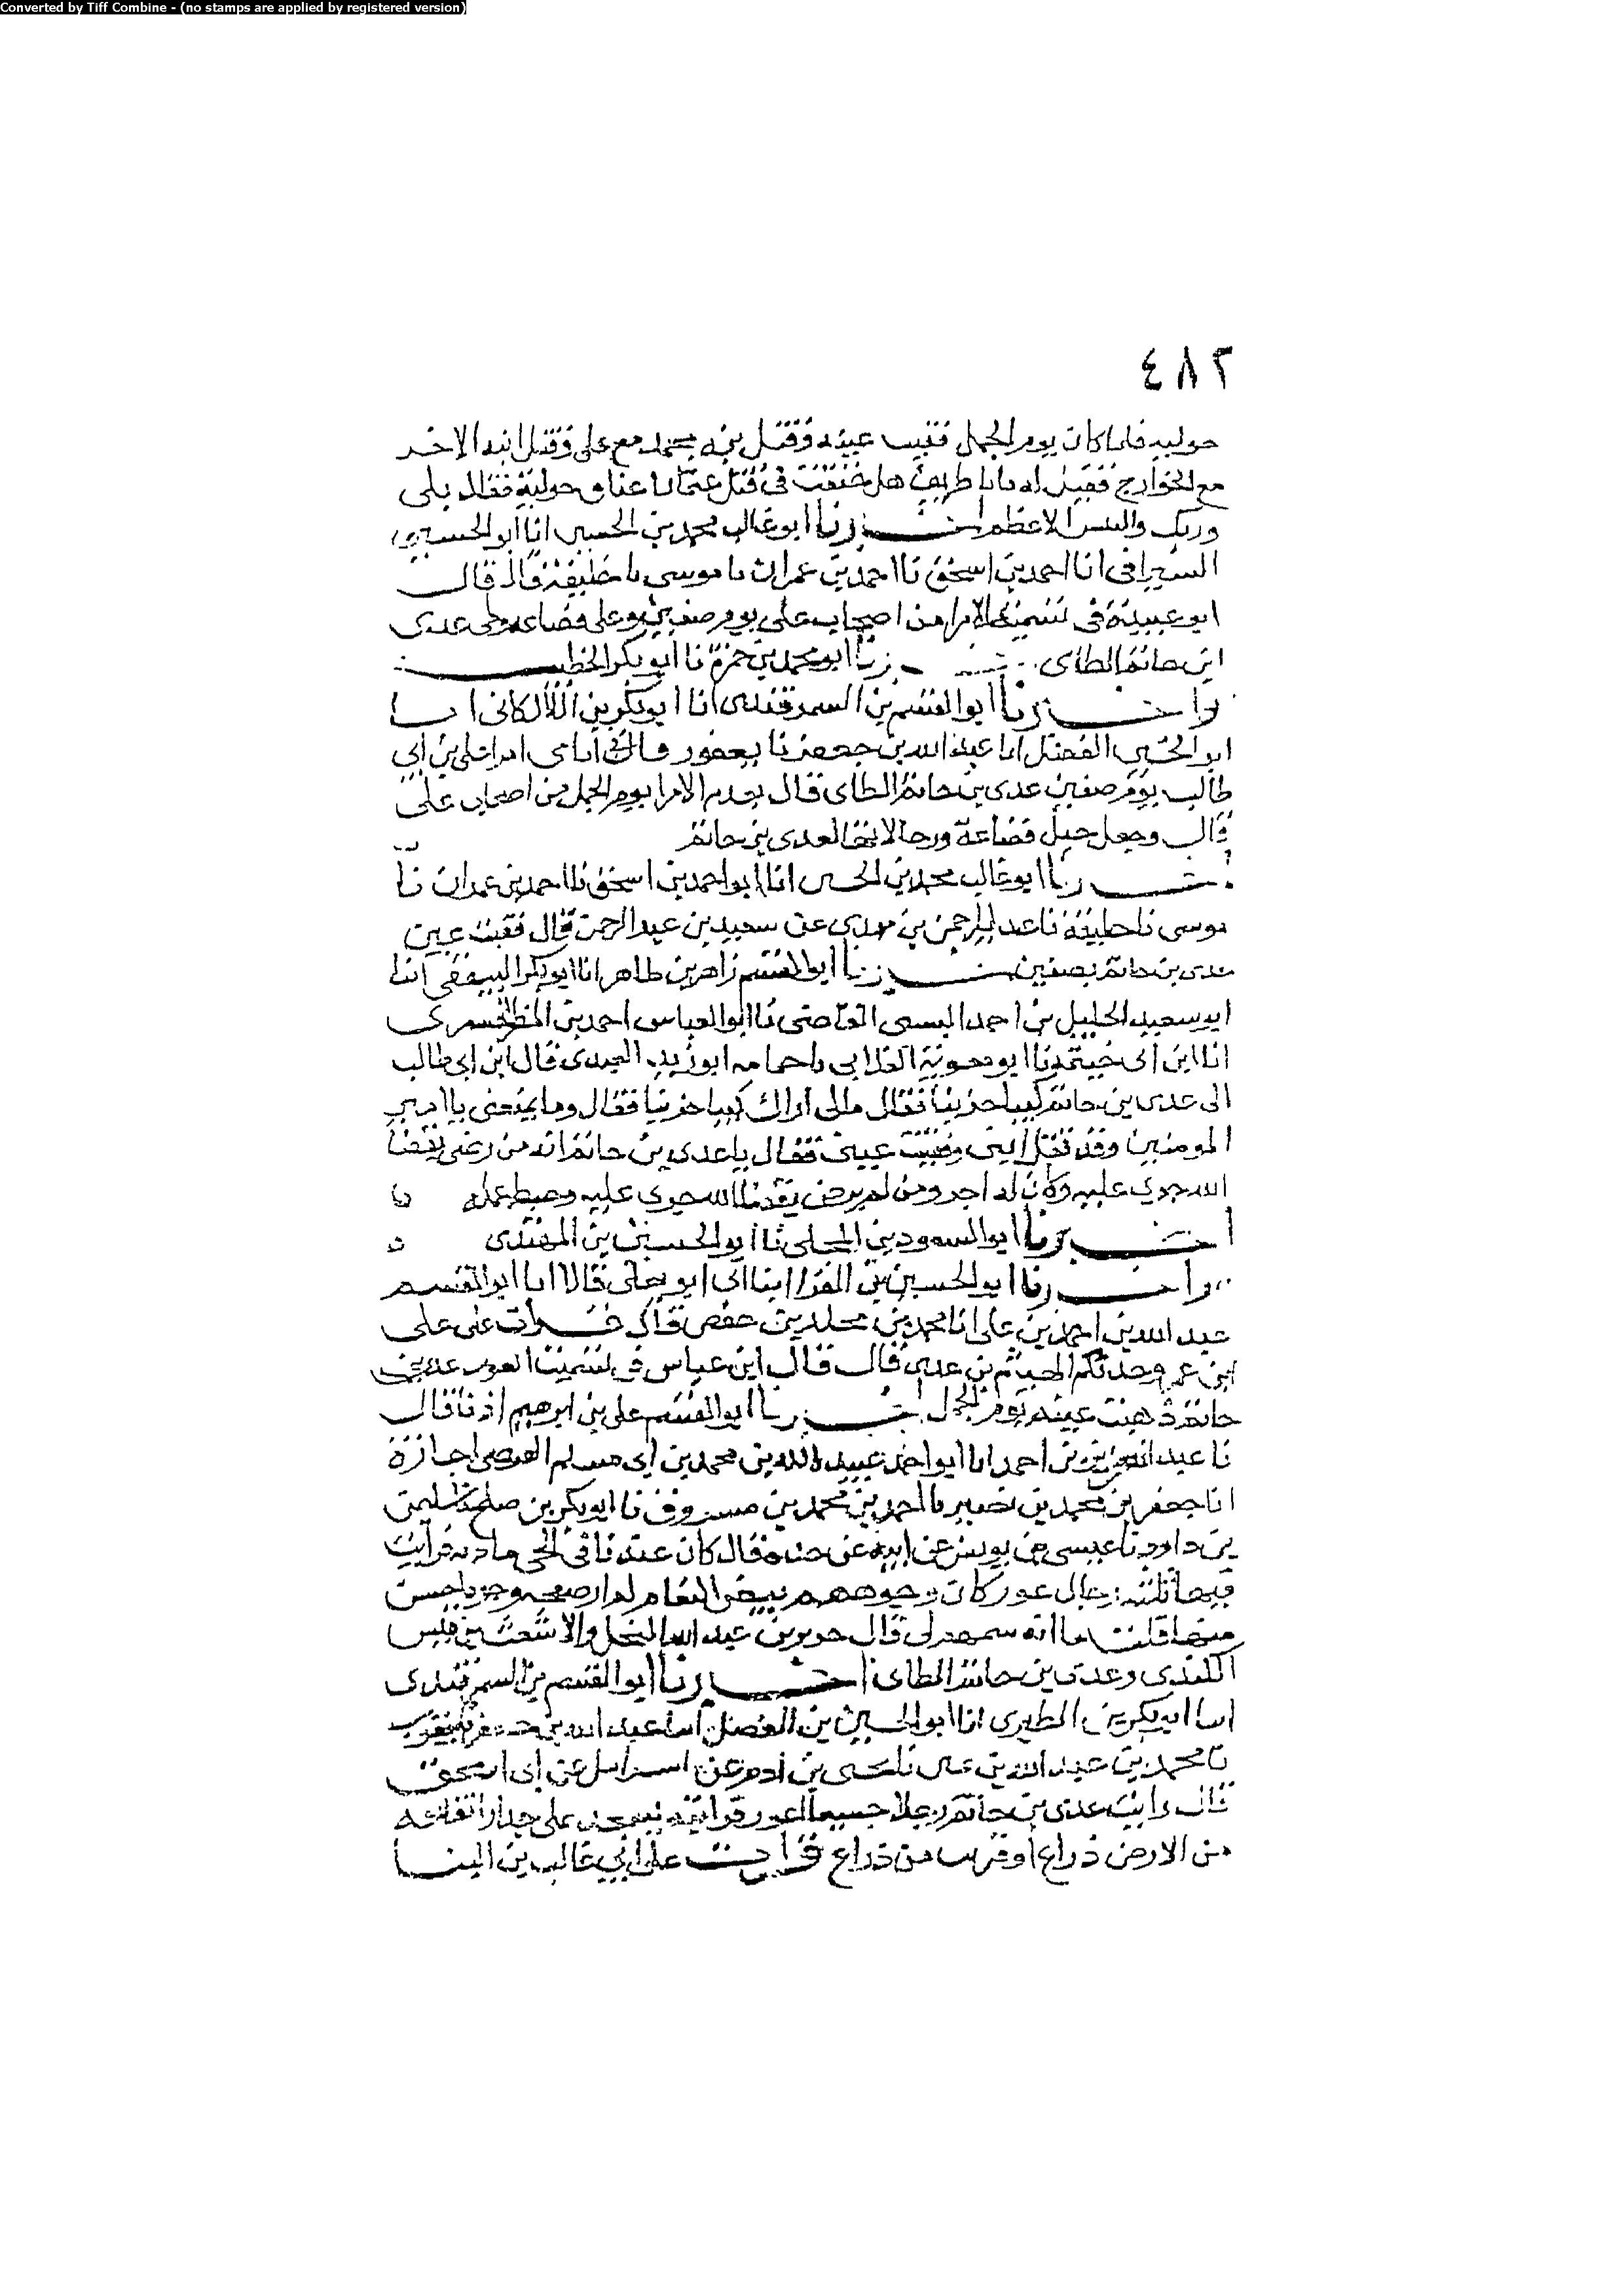 Converted by Tiff Combine - (no stamps are applied by registered version)
٤٨٢
حولية فلما كان يوم الجمل فقيت عينه وقتل ابنه محمد مع على وقتل ابنه الاخر
مع الخوارج فقيل له يابا طريف هل حبقت فى قتل عثمان عناق حولية فقال بلى
وربك والتيس الاعظم اخبرنا ابو غالب محمد بن الحسن انا ابو الحسين
السيرافى انا احمد بن اسحق نا احمد بن عمران نا موسى نا خليفة قال قال
ابو عبيدة فى تسمية الامرا من اصحاب على يوم صفين وعلى قضاعة وطى عدى
ابن حاتم الطاى اخبرنا ابو محمد بن حمزة نا ابو بكر الخطيب
واخبرنا ابو القسم بن السمرقندى انا ابو بكر بن اللالكانى انا
ابو الحسين الفضل انا عبد الله بن جعفر نا يعقوب قال فى اسامى امرا على بن ابى
طالب يوم صفين عدى بن حاتم الطاى قال يعقوب الامرا يوم الجمل من اصحاب على
قال وجعل خيل قضاعة ورجالاتها لعدى بن حاتم
اخبرنا ابو غالب محمد بن الحسن انا ابو احمد بن اسحق نا احمد بن عمران نا
موسى نا خليفة نا عبد الرحمن بن مهدى عن سعيد بن عبد الرحمن قال فقيت عين
عدى بن حاتم بصفين اخبرنا ابو القسم زاهر بن طاهر انا ابو بكر البيهقى انا
ابو سعيد الخليل بن احمد البستى القاضى نا ابو العباس احمد بن المظفر البكرى
انا ابن ابى خيثمة نا ابو معوية الغلابى نا ابو زيد العبدى قال ابن ابى طالب
الى عدى بن حاتم كييبا حزينا فقال مالى اراك كييبا حزينا فقال وما يمنعنى يا امير
المومنين وقد قتل ابنى وفقيت عينى فقال يا عدى بن حاتم انه من رضى بقضا
الله جرى عليه وكان له اجر ومن لم يرض بقضا الله جرى عليه وحبط عمله
اخبرنا ابو السعود بن المجلى نا ابو الحسين بن المهتدى
واخبرنا ابو الحسين بن الفرا انا ابى ابو يعلى قالا انا ابو القسم
عبيد الله بن احمد بن على انا محمد بن مخلد بن حفص قال قرات على على
ابن عمرو حدثكم الهيثم بن عدى قال قال ابن عباس فى تسمية العور عدى بن
حاتم ذهبت عينه يوم الجمل اخبرنا ابو القسم على بن ابرهيم اذنا قال
نا عبد العزيز بن احمد انا ابو احمد عبيد الله بن محمد بن ابى مسلم الفرضى اجازة
انا جعفر بن محمد بن نصير نا احمد بن محمد بن مسروق نا ابو بكر بن سليمن
بن داود نا عيسى بن يونس عن ابيه عن جده قال كان عندنا فى الحى مادبة فرايت
فيها ثلثة رجال عور كان وجوههم بيض النعام لم ار صفحة وجوه احسن
منها قلت ما انه سمهم لى قال جرير بن عبد الله البجلى والاشعث بن قيس
الكندى وعدى بن حاتم الطاى اخبرنا ابو القسم بن السمرقندى
انا ابو بكر بن الطبرى انا ابو الحسين بن الفضل انا عبد الله بن جعفر نا يعقوب
نا محمد بن عبد الله بن نا يحيى بن ادم عن اسرايل عن ابى اسحق
قال رايت عدى بن حاتم رجلا جسيما اعور فرايته يسجد على جدار ارتفاعه
من الارض ذراع او قريب من ذراع قرات على ابى غالب بن البنا